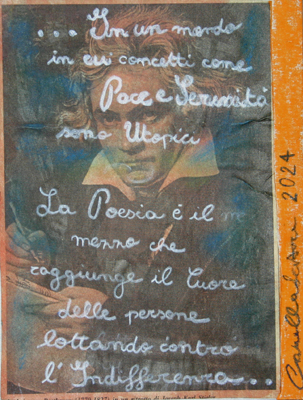 ...In un mondo
in cui concetti come
Pace e Serenità
sono Utopici
La Poesia è il
mezzo che
raggiunge il Cuore
delle persone
lottando contro
l'Indifferenza...
2024